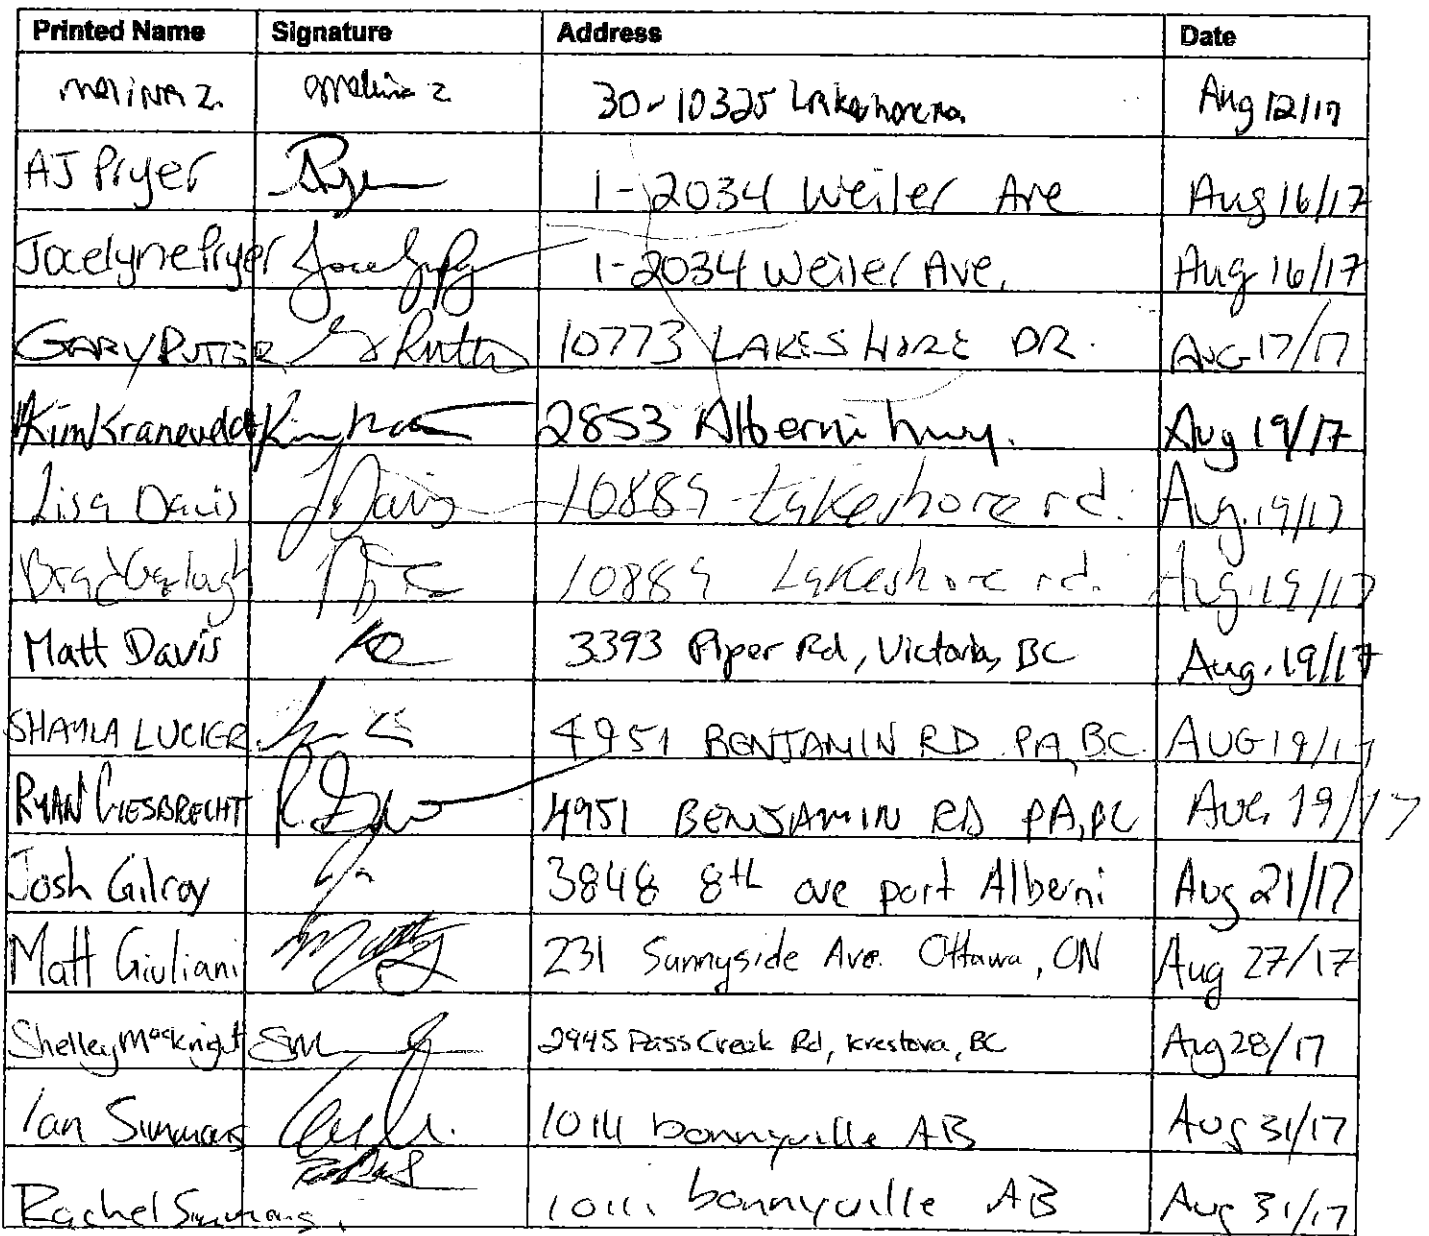 Printed Name Signature Address Date
malina z. malina z 30-10325 Aug 12/17
AJ Pryer 1-2034 Weiler Ave Aug 16/17
Jocelyne Pryer 1-2034 Weiler Ave. Aug 16/17
GARY RUTTER G Rutter 10773 LAKESHORE DR. AUG 17/17
Kim 2853 Alberni hwy. Aug 19/17
Lisa Davis L Davis 10889 Lakeshore rd. Aug. 19/17
Brad 10889 Lakeshore rd. Aug. 19/17
Matt Davis 3393 Piper Rd, Victoria, BC Aug. 19/17
SHAYLA LUCIER 4951 BENJAMIN RD PA, BC. AUG 19/17
RYAN GIESBRECHT 4951 BENJAMIN RD PA, BC AUG 19/17
Josh Gilroy 3848 8th ave port Alberni Aug 21/17
Matt Giuliani 231 Sunnyside Ave. Ottawa, ON Aug 27/17
Shelley MacKnight 2945 Pass Creek Rd, Krestova, BC Aug 28/17
Ian Simmons bonnyville AB Aug 31/17
Rachel Simmons. bonnyville AB Aug 31/17